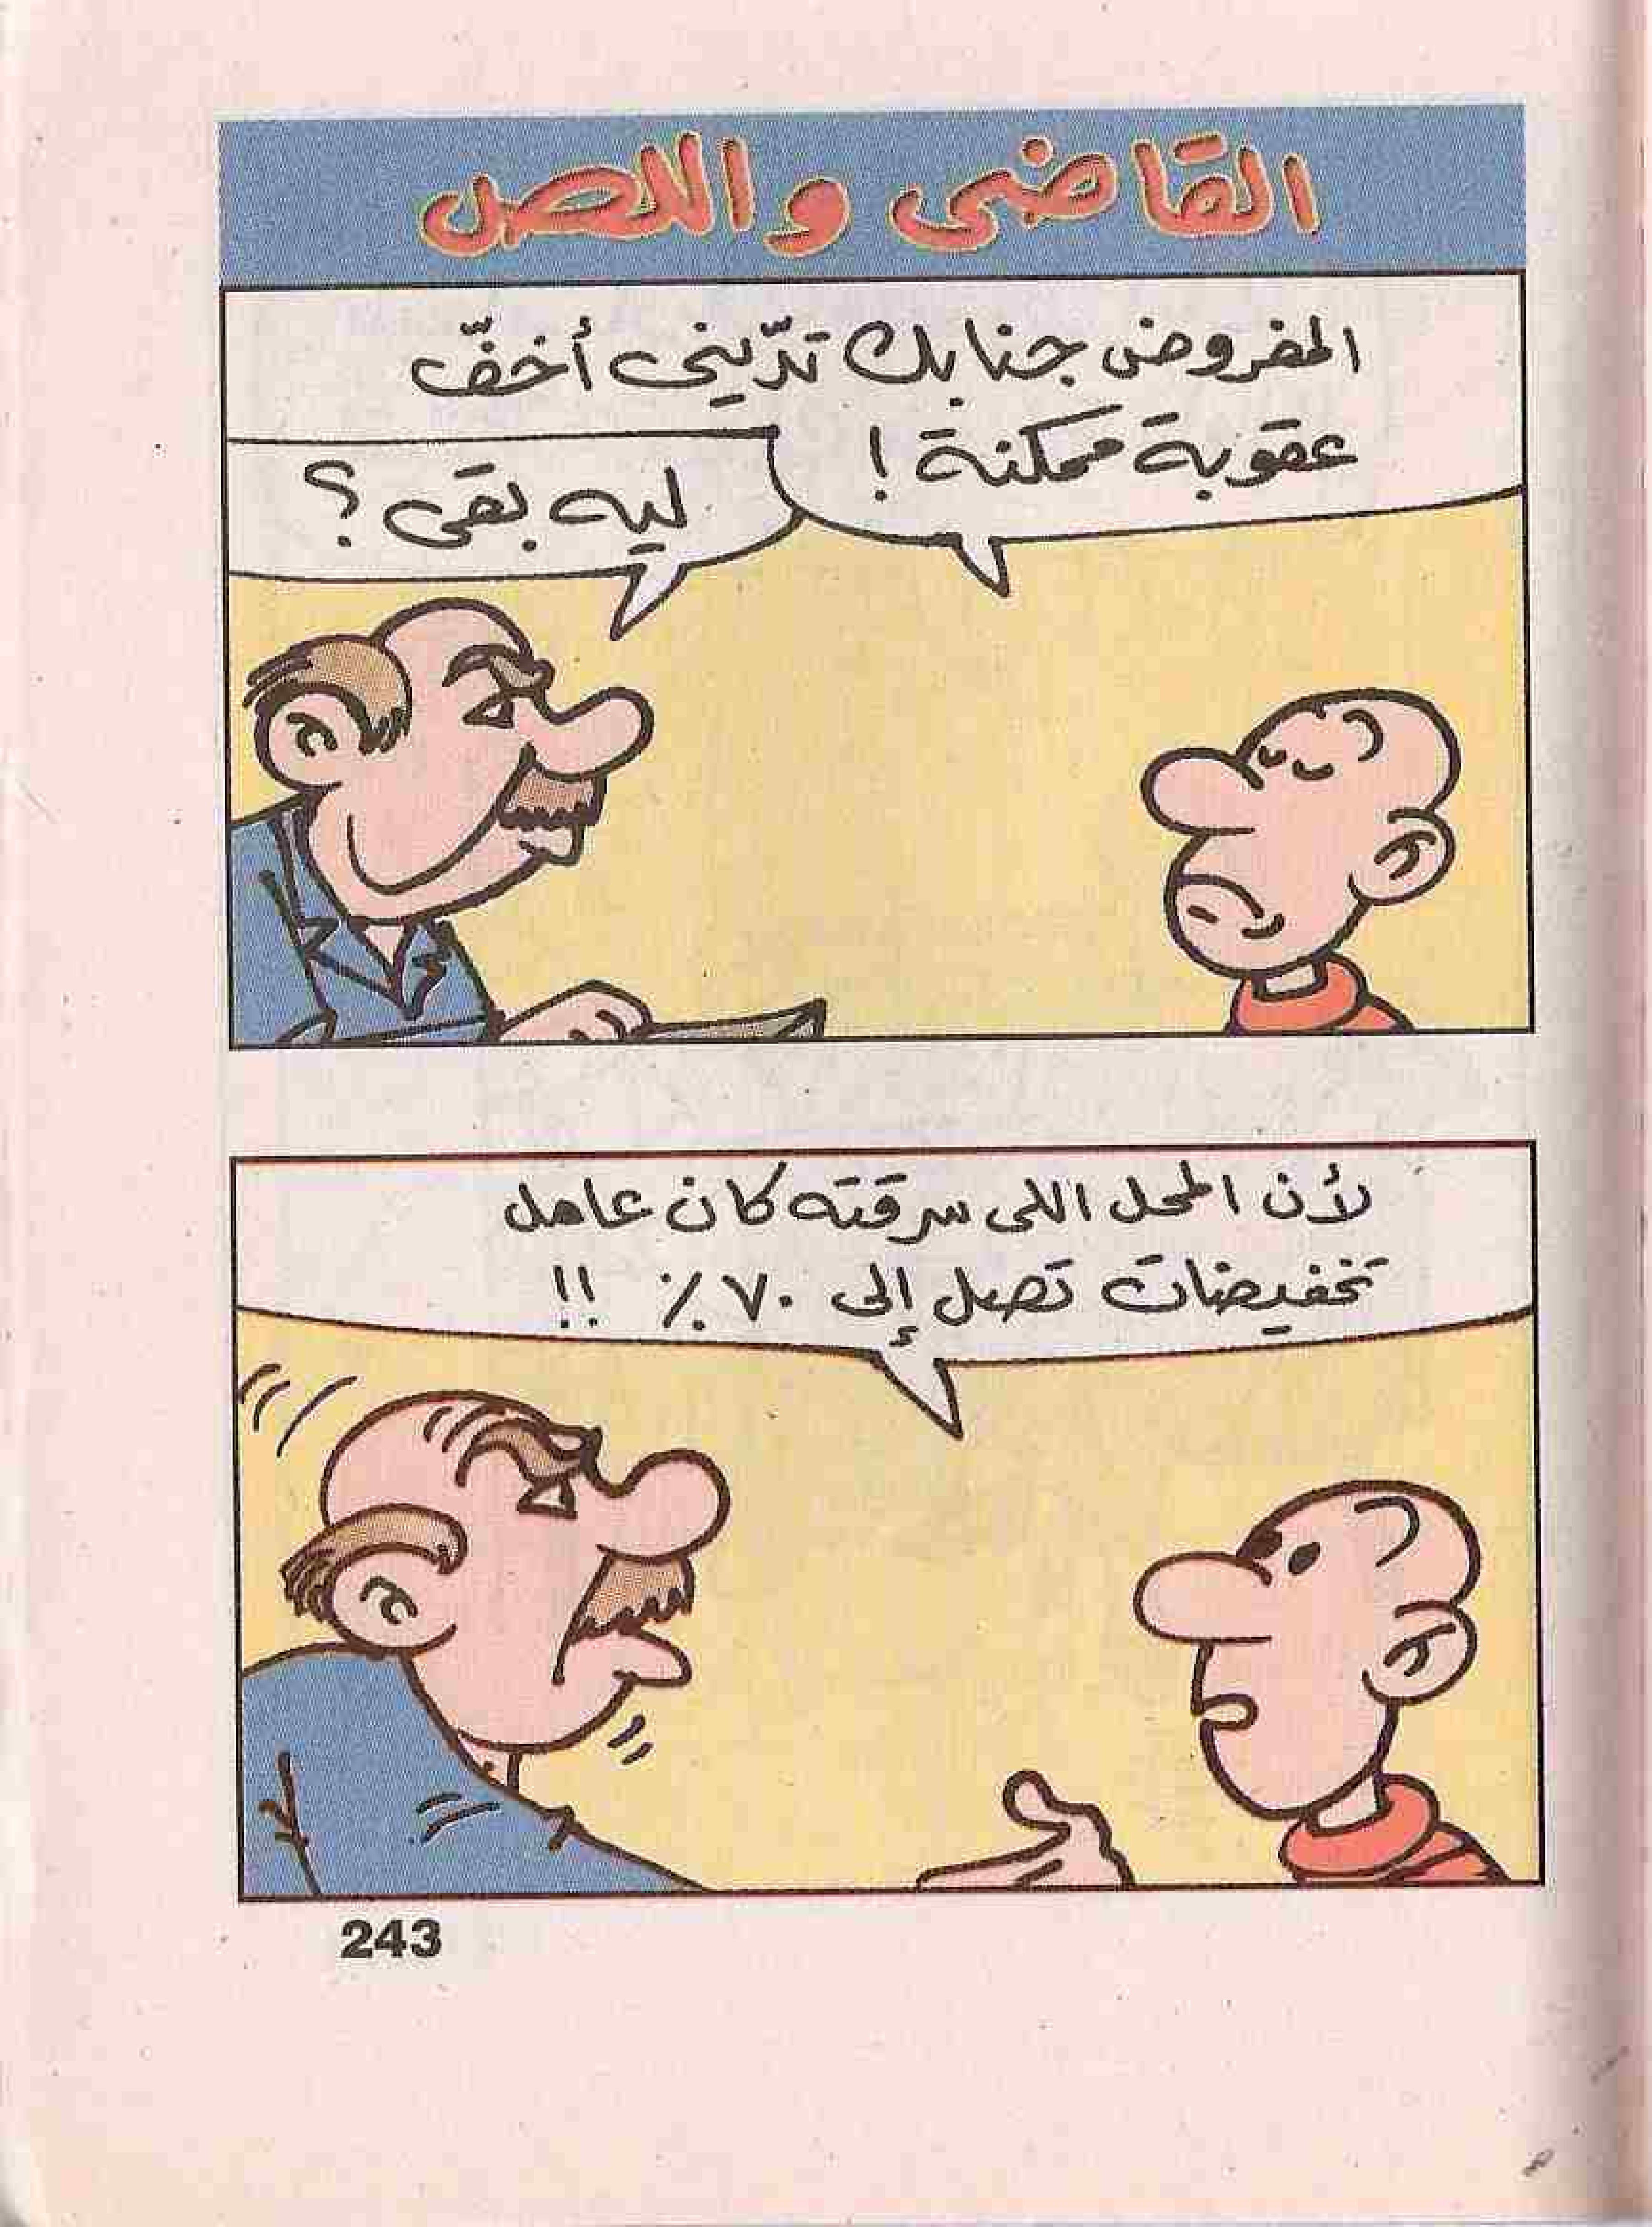 القاضى واللص
المفروض جنابك تدّينى أخفّ
عقوبة ممكنة!
ليه بقى؟
لأن المحل اللى سرقته كان عامل
تخفيضات تصل إلى ٧٠٪ !!
243